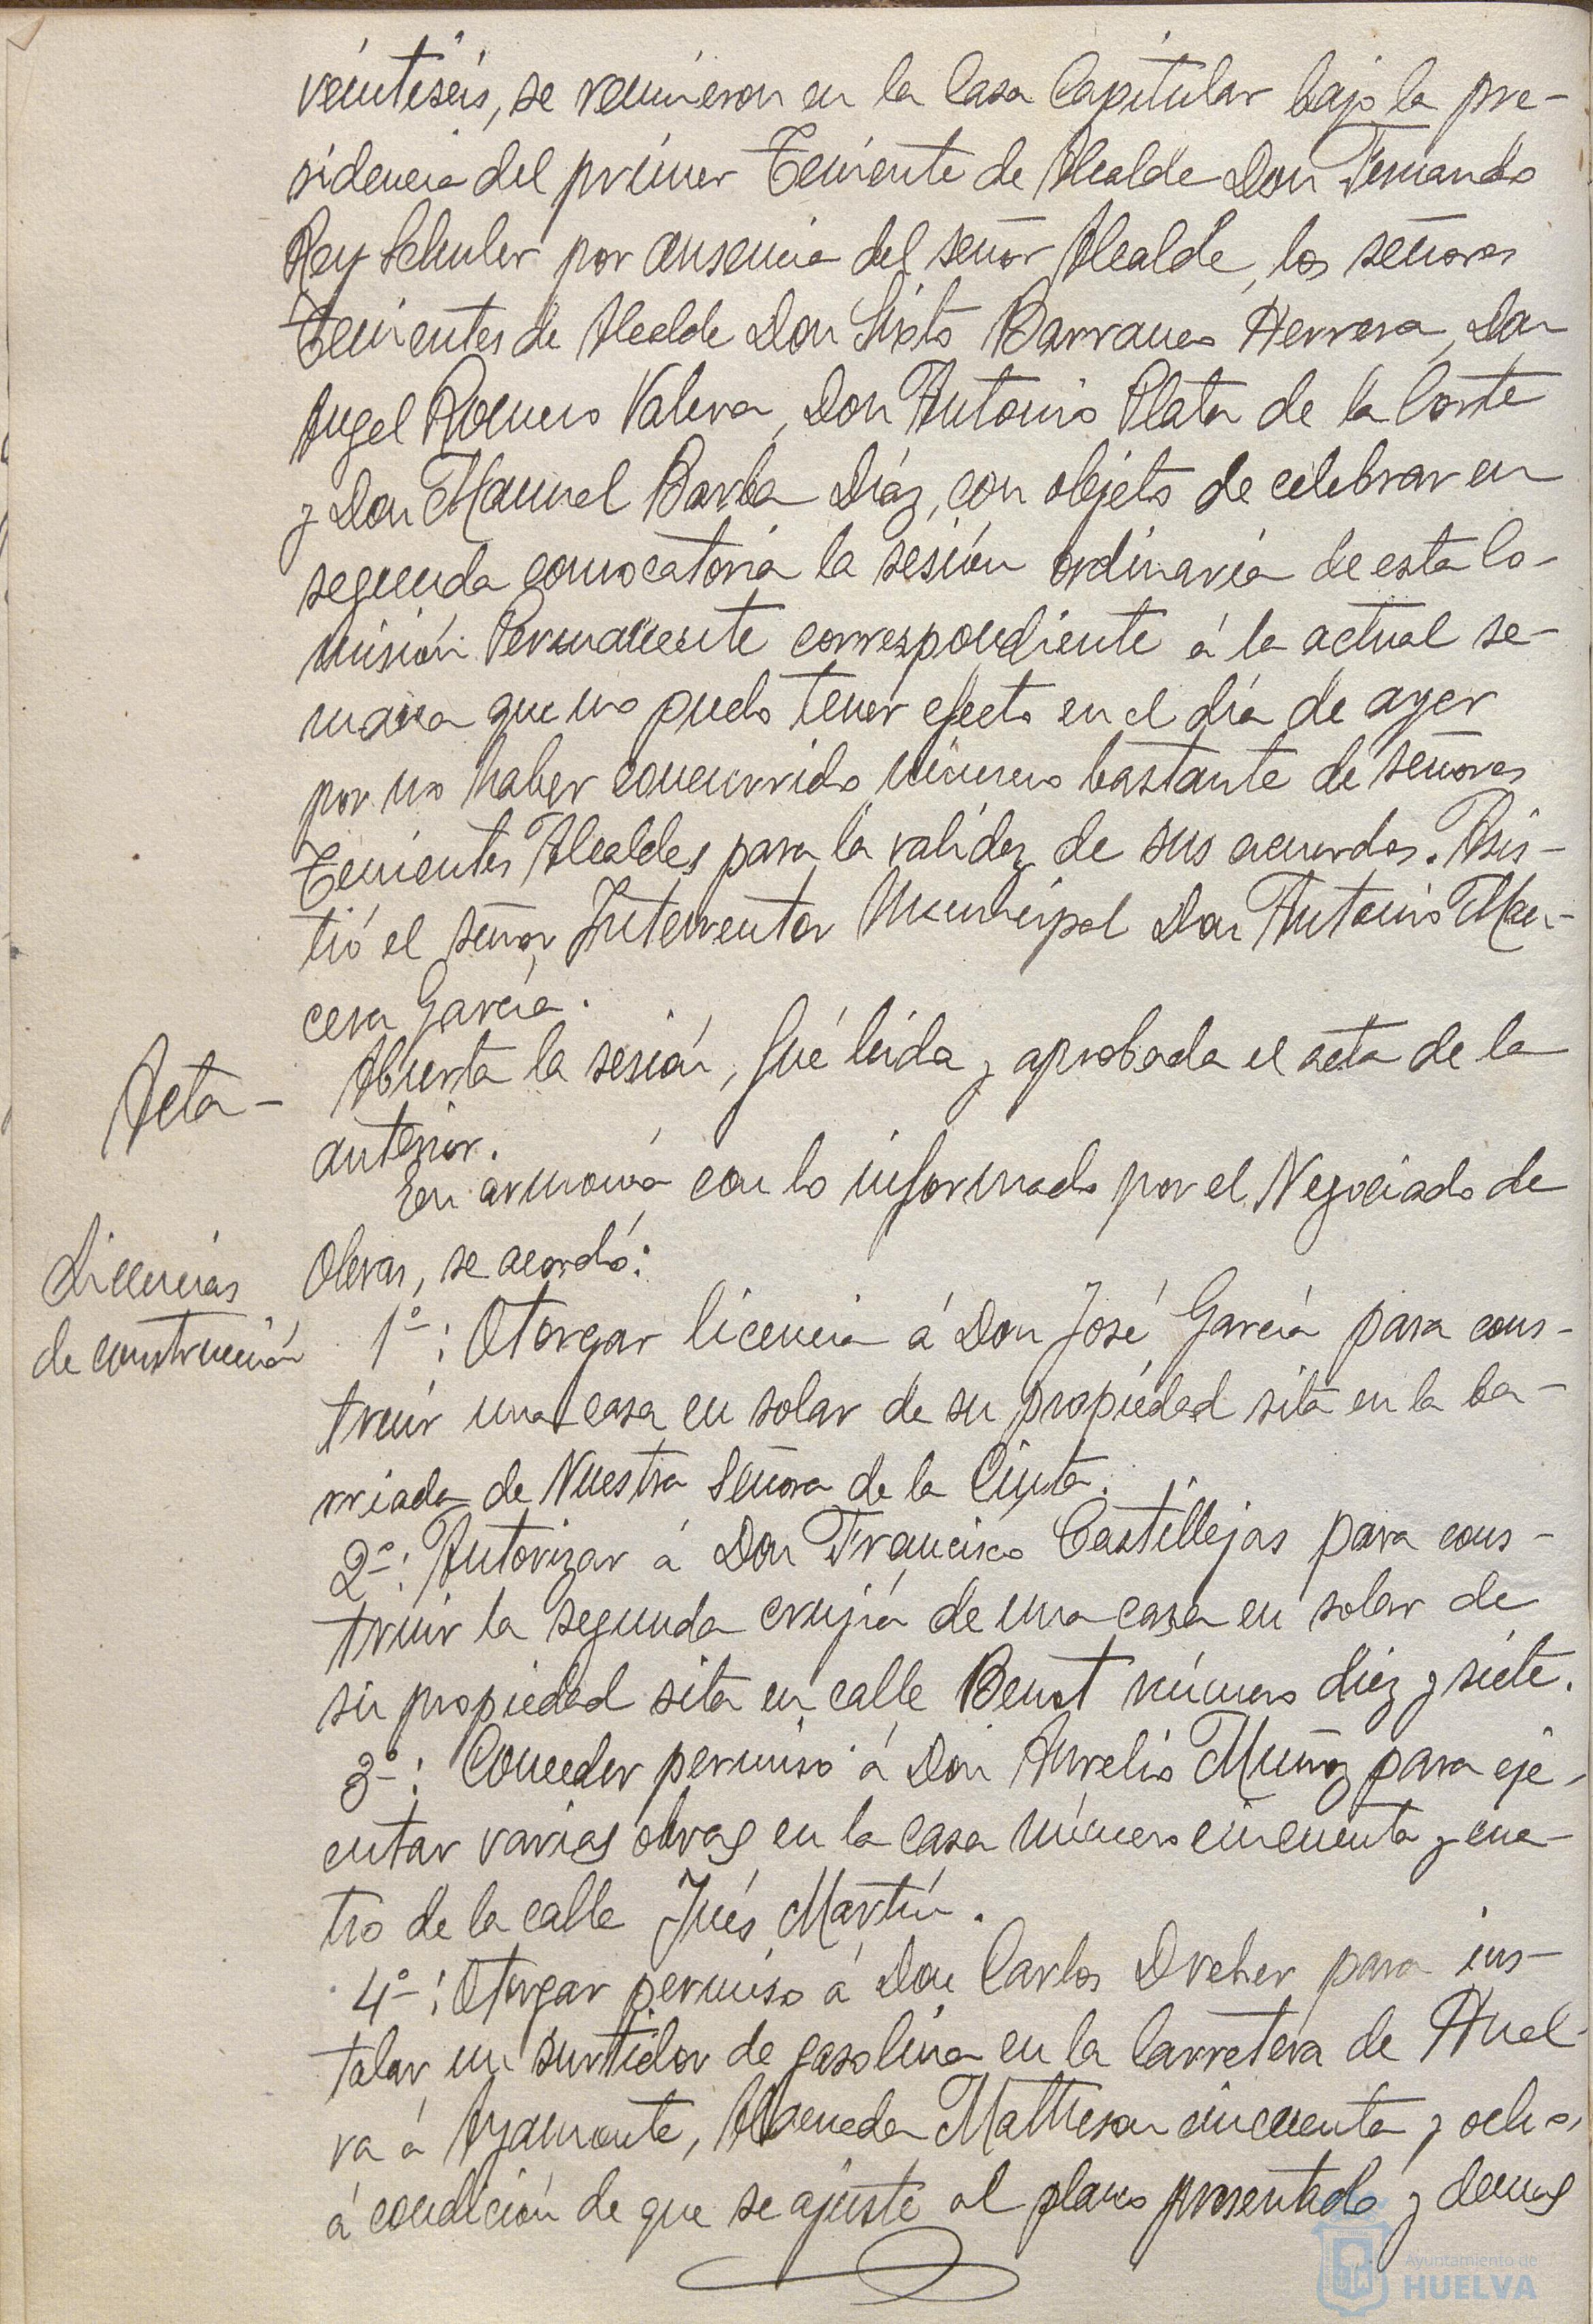 veintiséis, se reunieron en la Casa Capitular bajo la pre-
sidencia del primer Teniente de Alcalde Don Fernando
Rey Schuler por ausencia del señor Alcalde, los señores
Tenientes de Alcalde Don Sixto Barranco Herrera, Don
Angel Romero Valera, Don Antonio Plata de la Corte
y Don Manuel Barba Díaz, con objeto de celebrar en
segunda convocatoria la sesión ordinaria de esta Co-
misión Permanente correspondiente á la actual se-
mana que no pudo tener efecto en el día de ayer
por no haber concurrido número bastante de señores
Tenientes Alcaldes para la validez de sus acuerdos. Asis-
tió el señor Interventor Municipal Don Antonio Man-
cera García.
Acta- Abierta la sesión, fué leida y aprobada el acta de la
anterior.
En armonía con lo informado por el Negociado de
Licencias Obras, se acordó:
de construcción 1º: Otorgar licencia á Don José García para cons-
truir una casa en solar de su propiedad sita en la ba-
rriada de Nuestra Señora de la Cinta.
2º: Autorizar á Don Francisco Castillejas para cons-
truir la segunda crujía de una casa en solar de
su propiedad sita en calle Benot número diez y siete.
3º: Conceder permiso á Don Aurelio Muñoz para eje-
cutar varias obras en la casa número cincuenta y cua-
tro de la calle Inés Martín.
4º: Otorgar permiso á Don Carlos Dreher para ins-
talar un surtidor de gasolina en la Carretera de Huel-
va á Ayamonte, Alameda Matheson cincuenta y ocho,
á condición de que se ajuste al plano presentado y demas
Ayuntamiento de
HUELVA